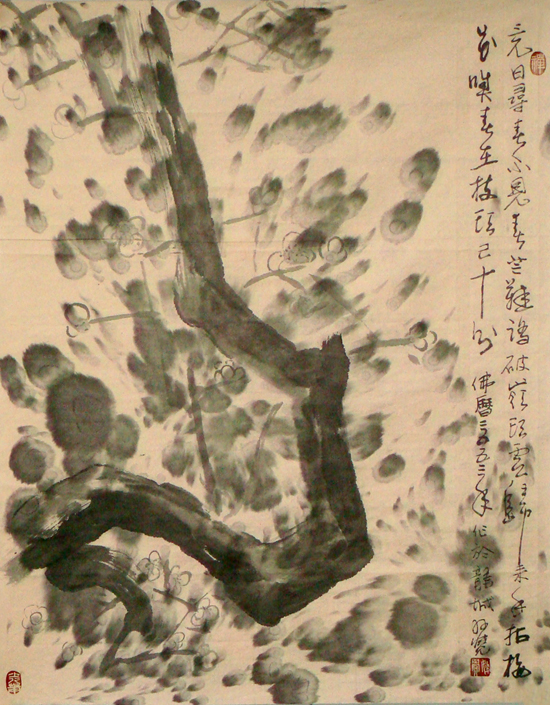 竟日尋春不見春芒鞋踏破嶺頭雲歸來拈梅
花嗅春在枝頭已十分 佛曆二五五三年作於龍城